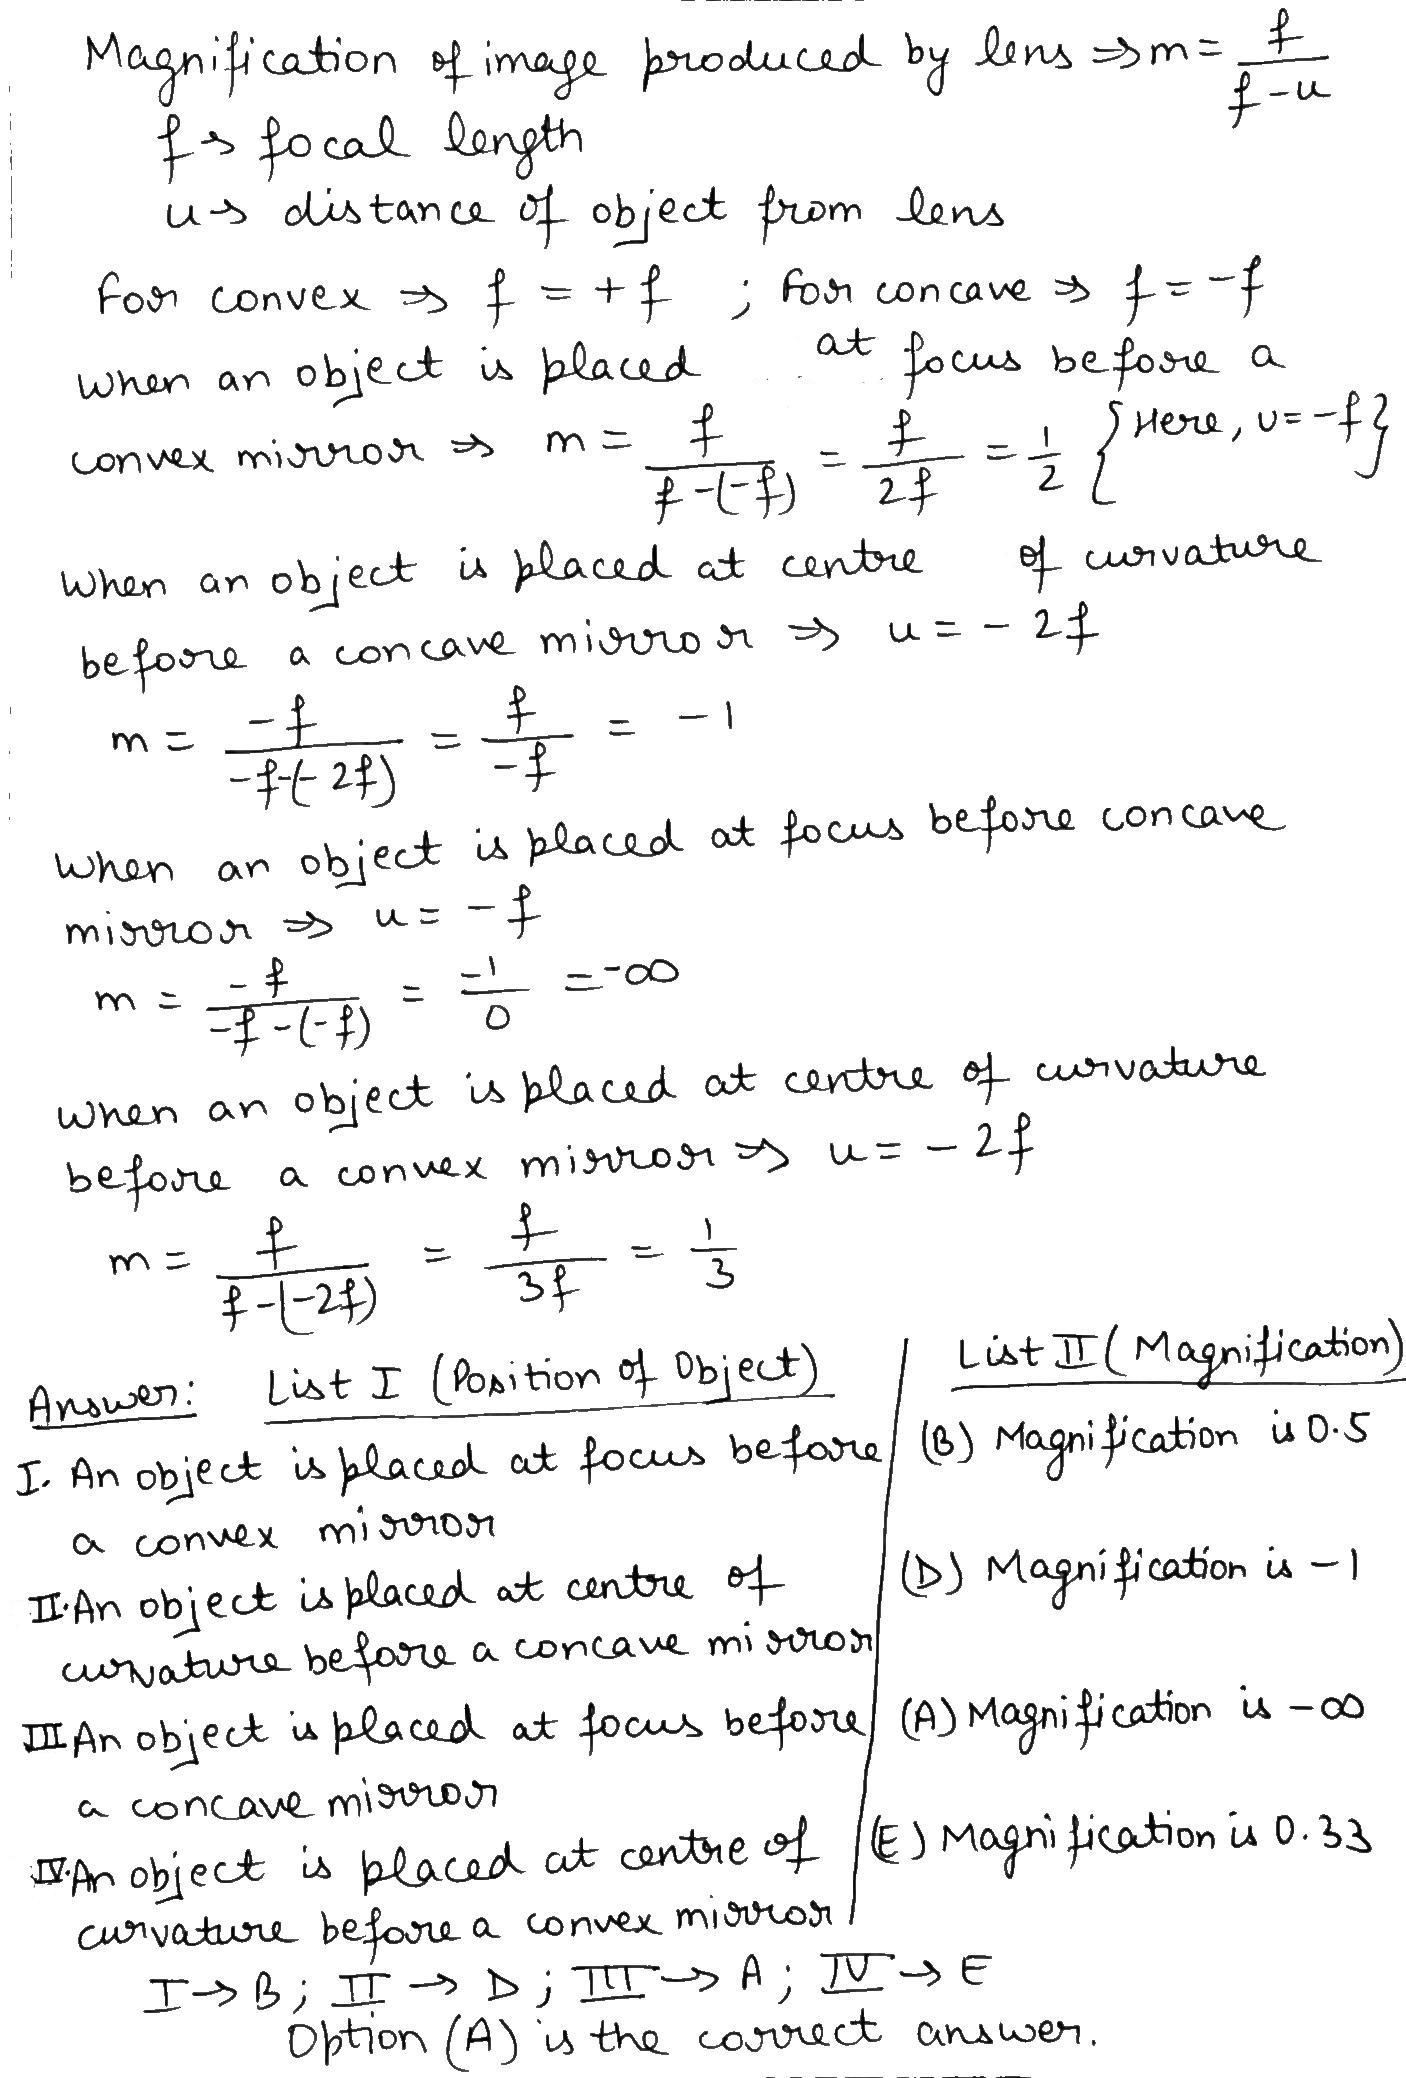 Magnification of image produced by lens ⇒ m = f/(f-u)
f → focal length
u → distance of object from lens
for convex ⇒ f = +f ; for concave ⇒ f = -f
when an object is placed at focus before a
convex mirror ⇒ m = f/(f-(-f)) = f/2f = 1/2 {Here, u = -f}
when an object is placed at centre of curvature
before a concave mirror ⇒ u = -2f
m = -f/(-f-(-2f)) = f/-f = -1
when an object is placed at focus before concave
mirror ⇒ u = -f
m = -f/(-f-(-f)) = -1/0 = -∞
when an object is placed at centre of curvature
before a convex mirror ⇒ u = -2f
m = f/(f-(-2f)) = f/3f = 1/3
Answer: List I (Position of Object) List II (Magnification)
I. An object is placed at focus before (B) Magnification is 0.5
a convex mirror
II. An object is placed at centre of (D) Magnification is -1
curvature before a concave mirror
III An object is placed at focus before (A) Magnification is -∞
a concave mirror
IV. An object is placed at centre of (E) Magnification is 0.33
curvature before a convex mirror
I → B ; II → D ; III → A ; IV → E
Option (A) is the correct answer.